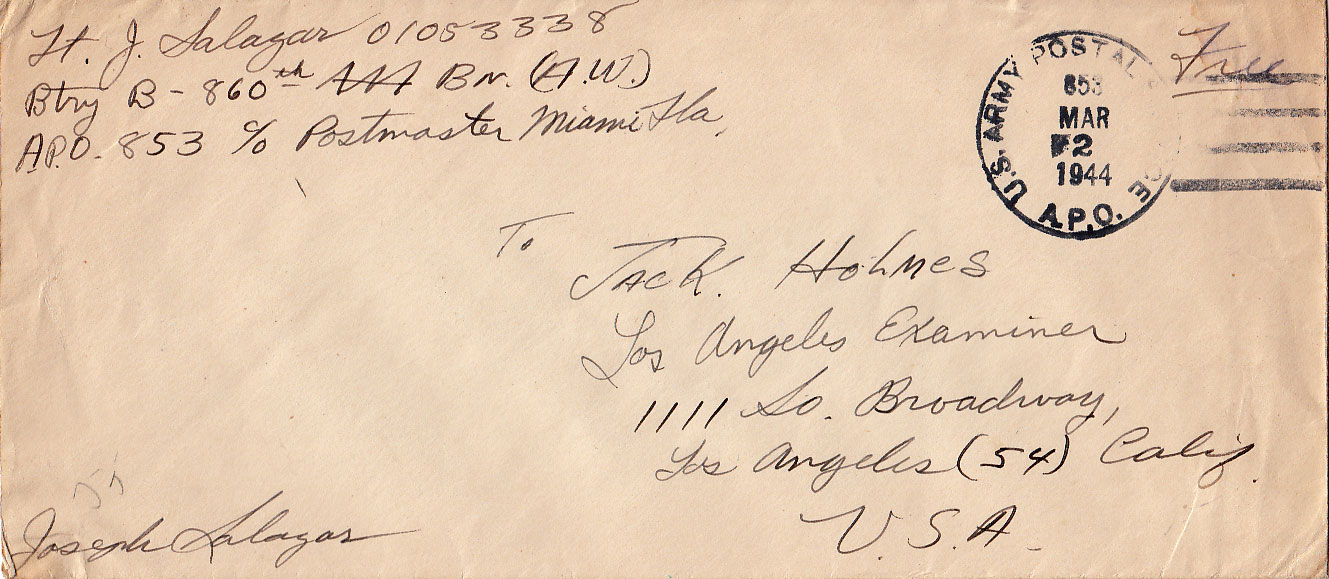 Lt. J. Salazar 01053338
Btry B - 860th AAA Bn. (A.W.)
A.P.O. 853 c/o Postmaster Miami Fla.
Free
U.S. ARMY POSTAL
853
MAR
2
1944
A.P.O.
To
Jack Holmes
Los Angeles Examiner
1111 So. Broadway,
Los Angeles (54) Calif.
U.S.A.
Joseph Salazar